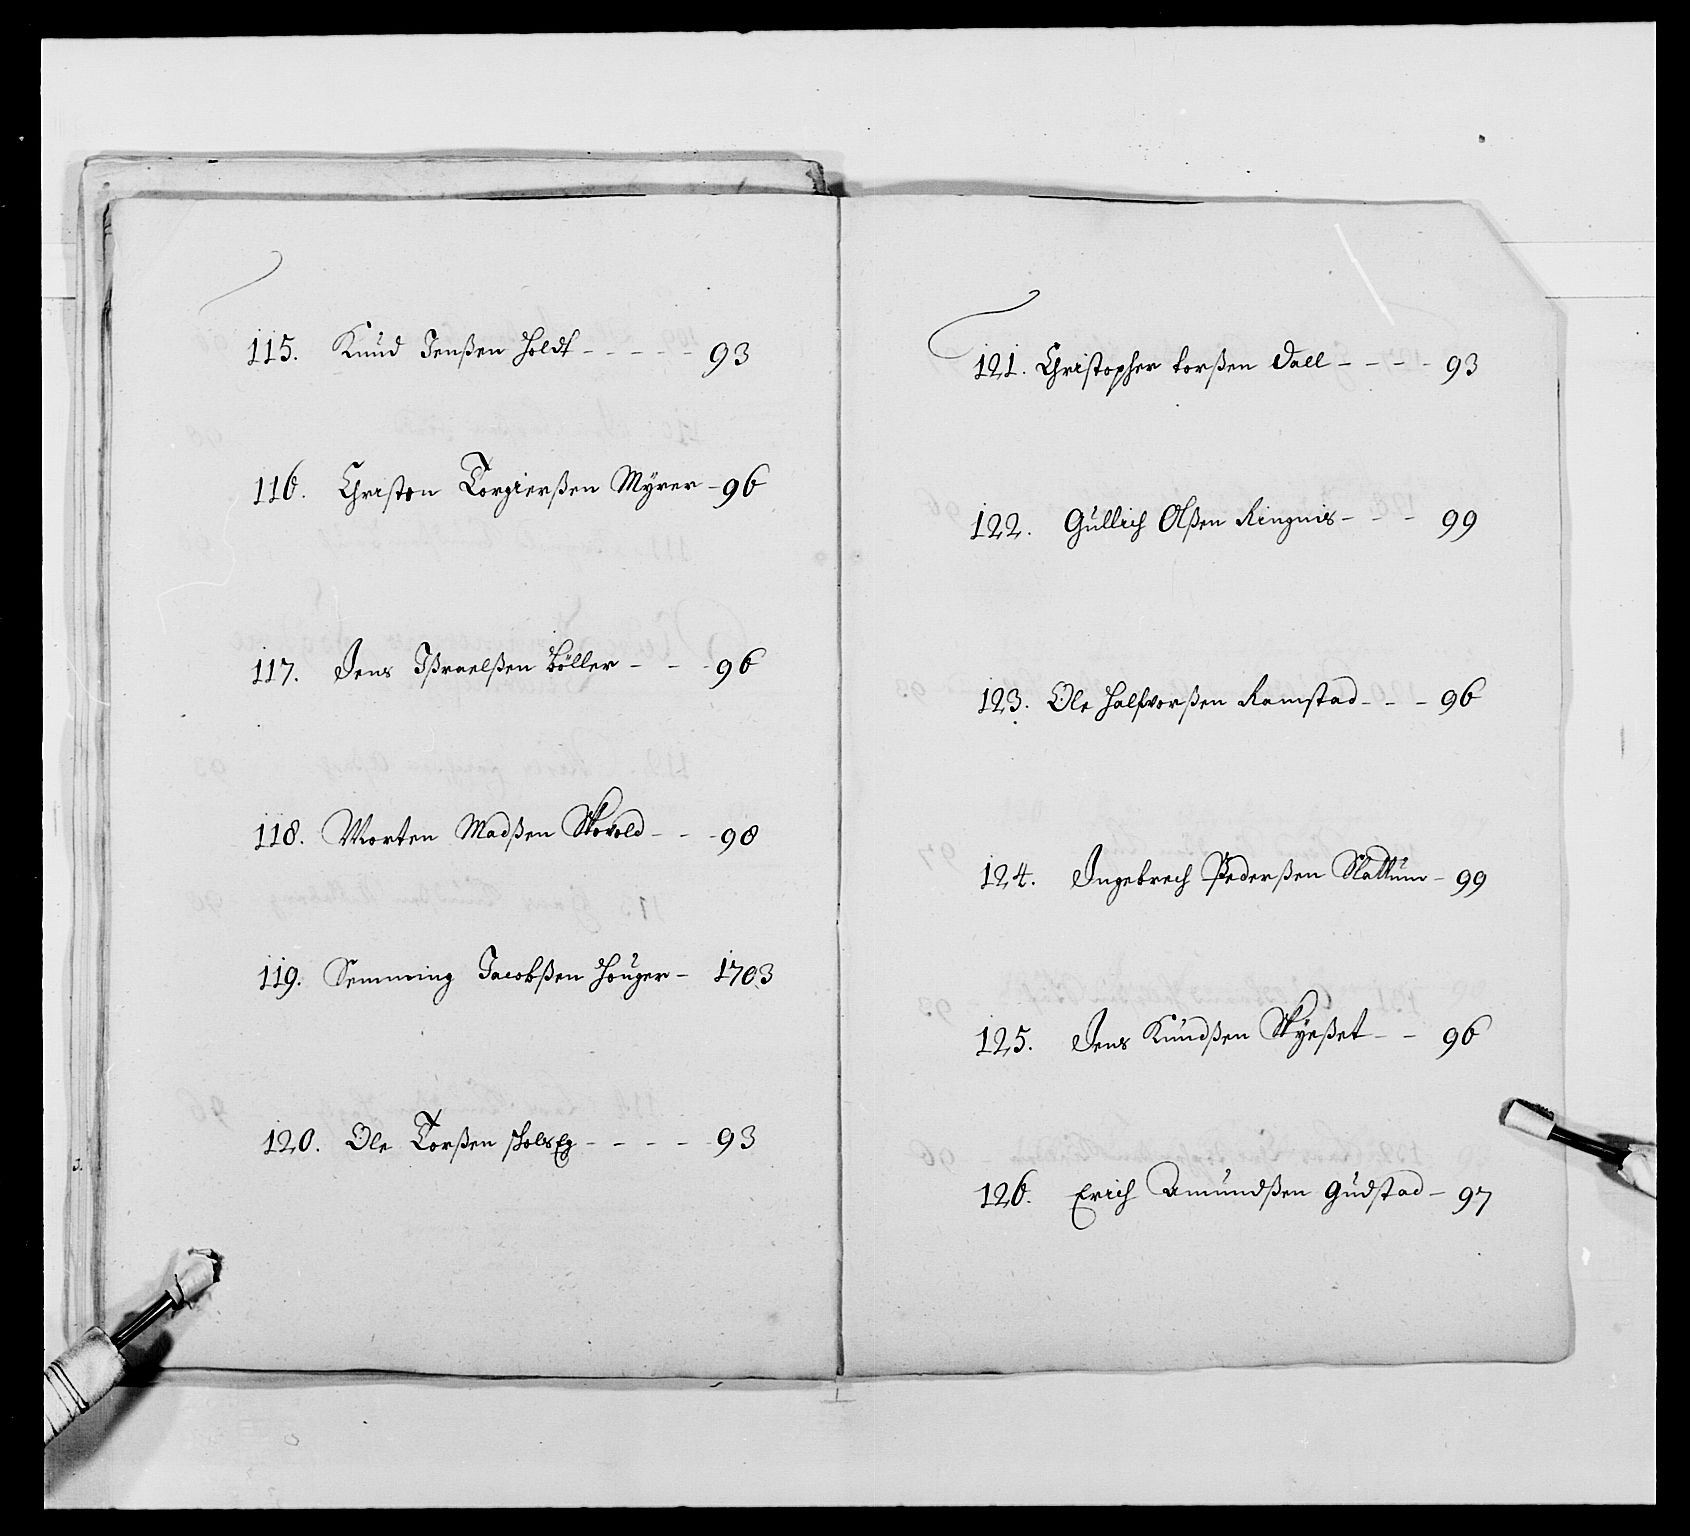 115. Knud Jenßen Holdt - - - - - 93
116. Christen Torgierßen Myrer - 96
117. Jens Ißraelßen Böller - - - 96
118. Morten Madßen Skovold - - - 98
119. Semming Jacobßen Houger - 1703
120. Ole Torßen - - - - - 93
121. Christopher torßen Dall - - - - 93
122. Gullich Olßen Ringnis - - - 99
123. Ole Halfvorßen Ramstad - - - 96
124. Ingebrech Pederßen Slattum - 99
125. Jens Knudßen Skyeßet - - 96
126. Erich Amundßen Gudstad - 97